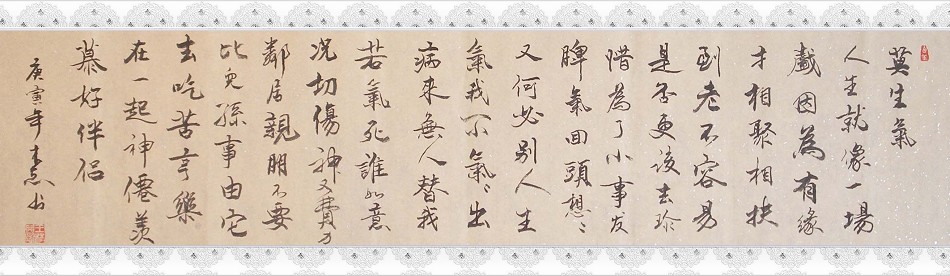 莫生氣
人生就像一場
戲因為有緣
才相聚相扶
到老不容易
是否更該去珍
惜為了小事发
脾氣回頭想々
又何必别人生
氣我不氣々出
病來無人替我
若氣死誰如意
况切傷神又費力
鄰居親朋不要
比兒孫事由它
去吃苦享樂
在一起神僊羡
慕好伴侣
庚寅年 书